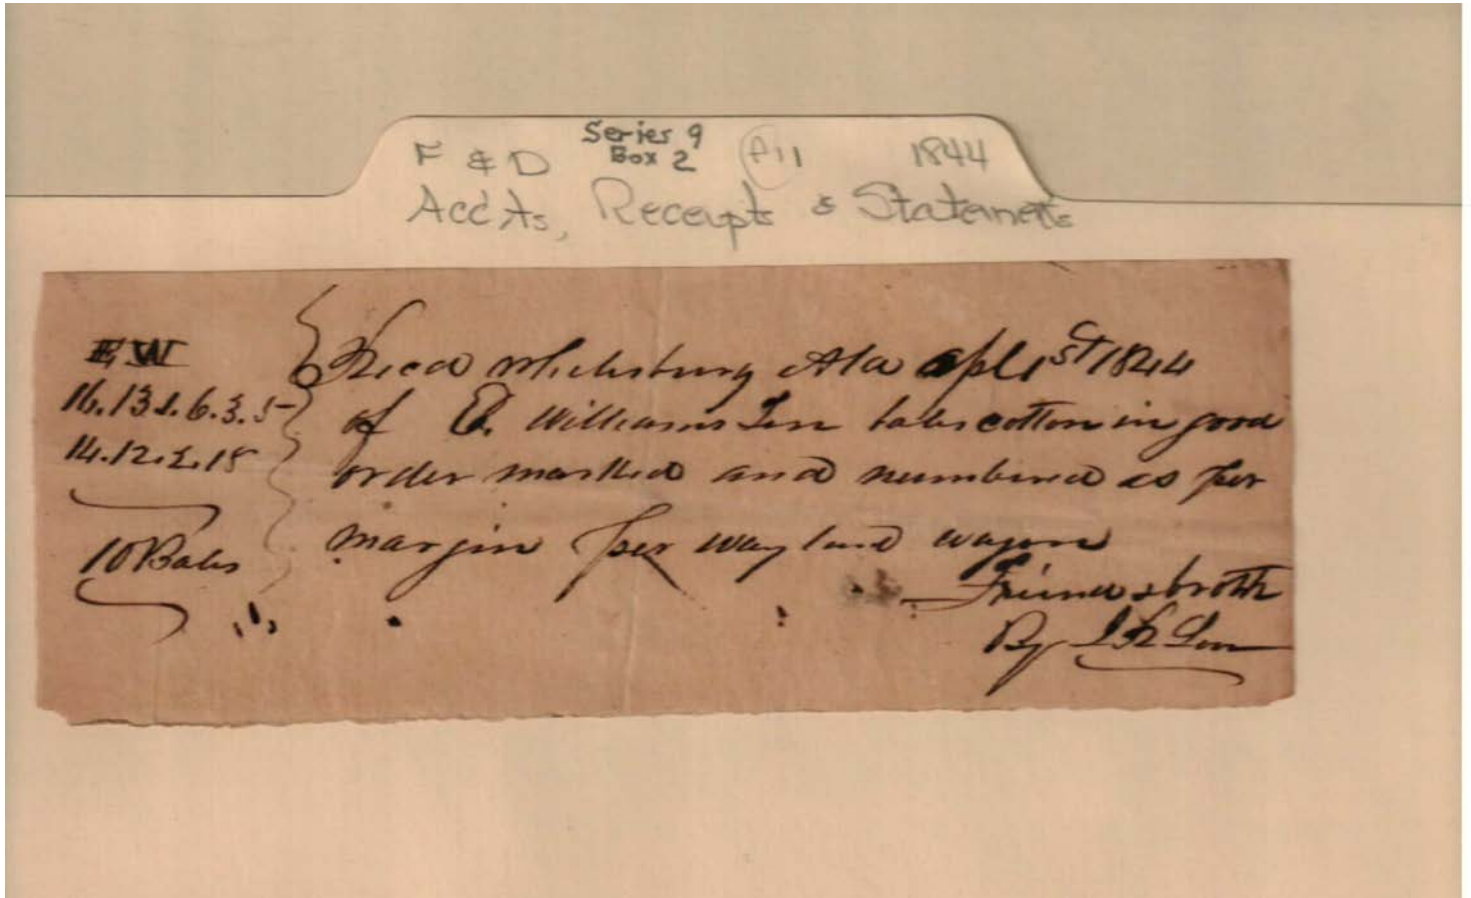 F & D Series 9 Box 2 P11 1844
Accts, Receipts & Statements
EW
16.13.1.6.3.5
14.12.2.15
10 Bales
Recd Whitesburg Ala apl 1st 1844
of E. Williams Ten bales cotton in good
order marked and numbered as per
margin per way land wagon
By